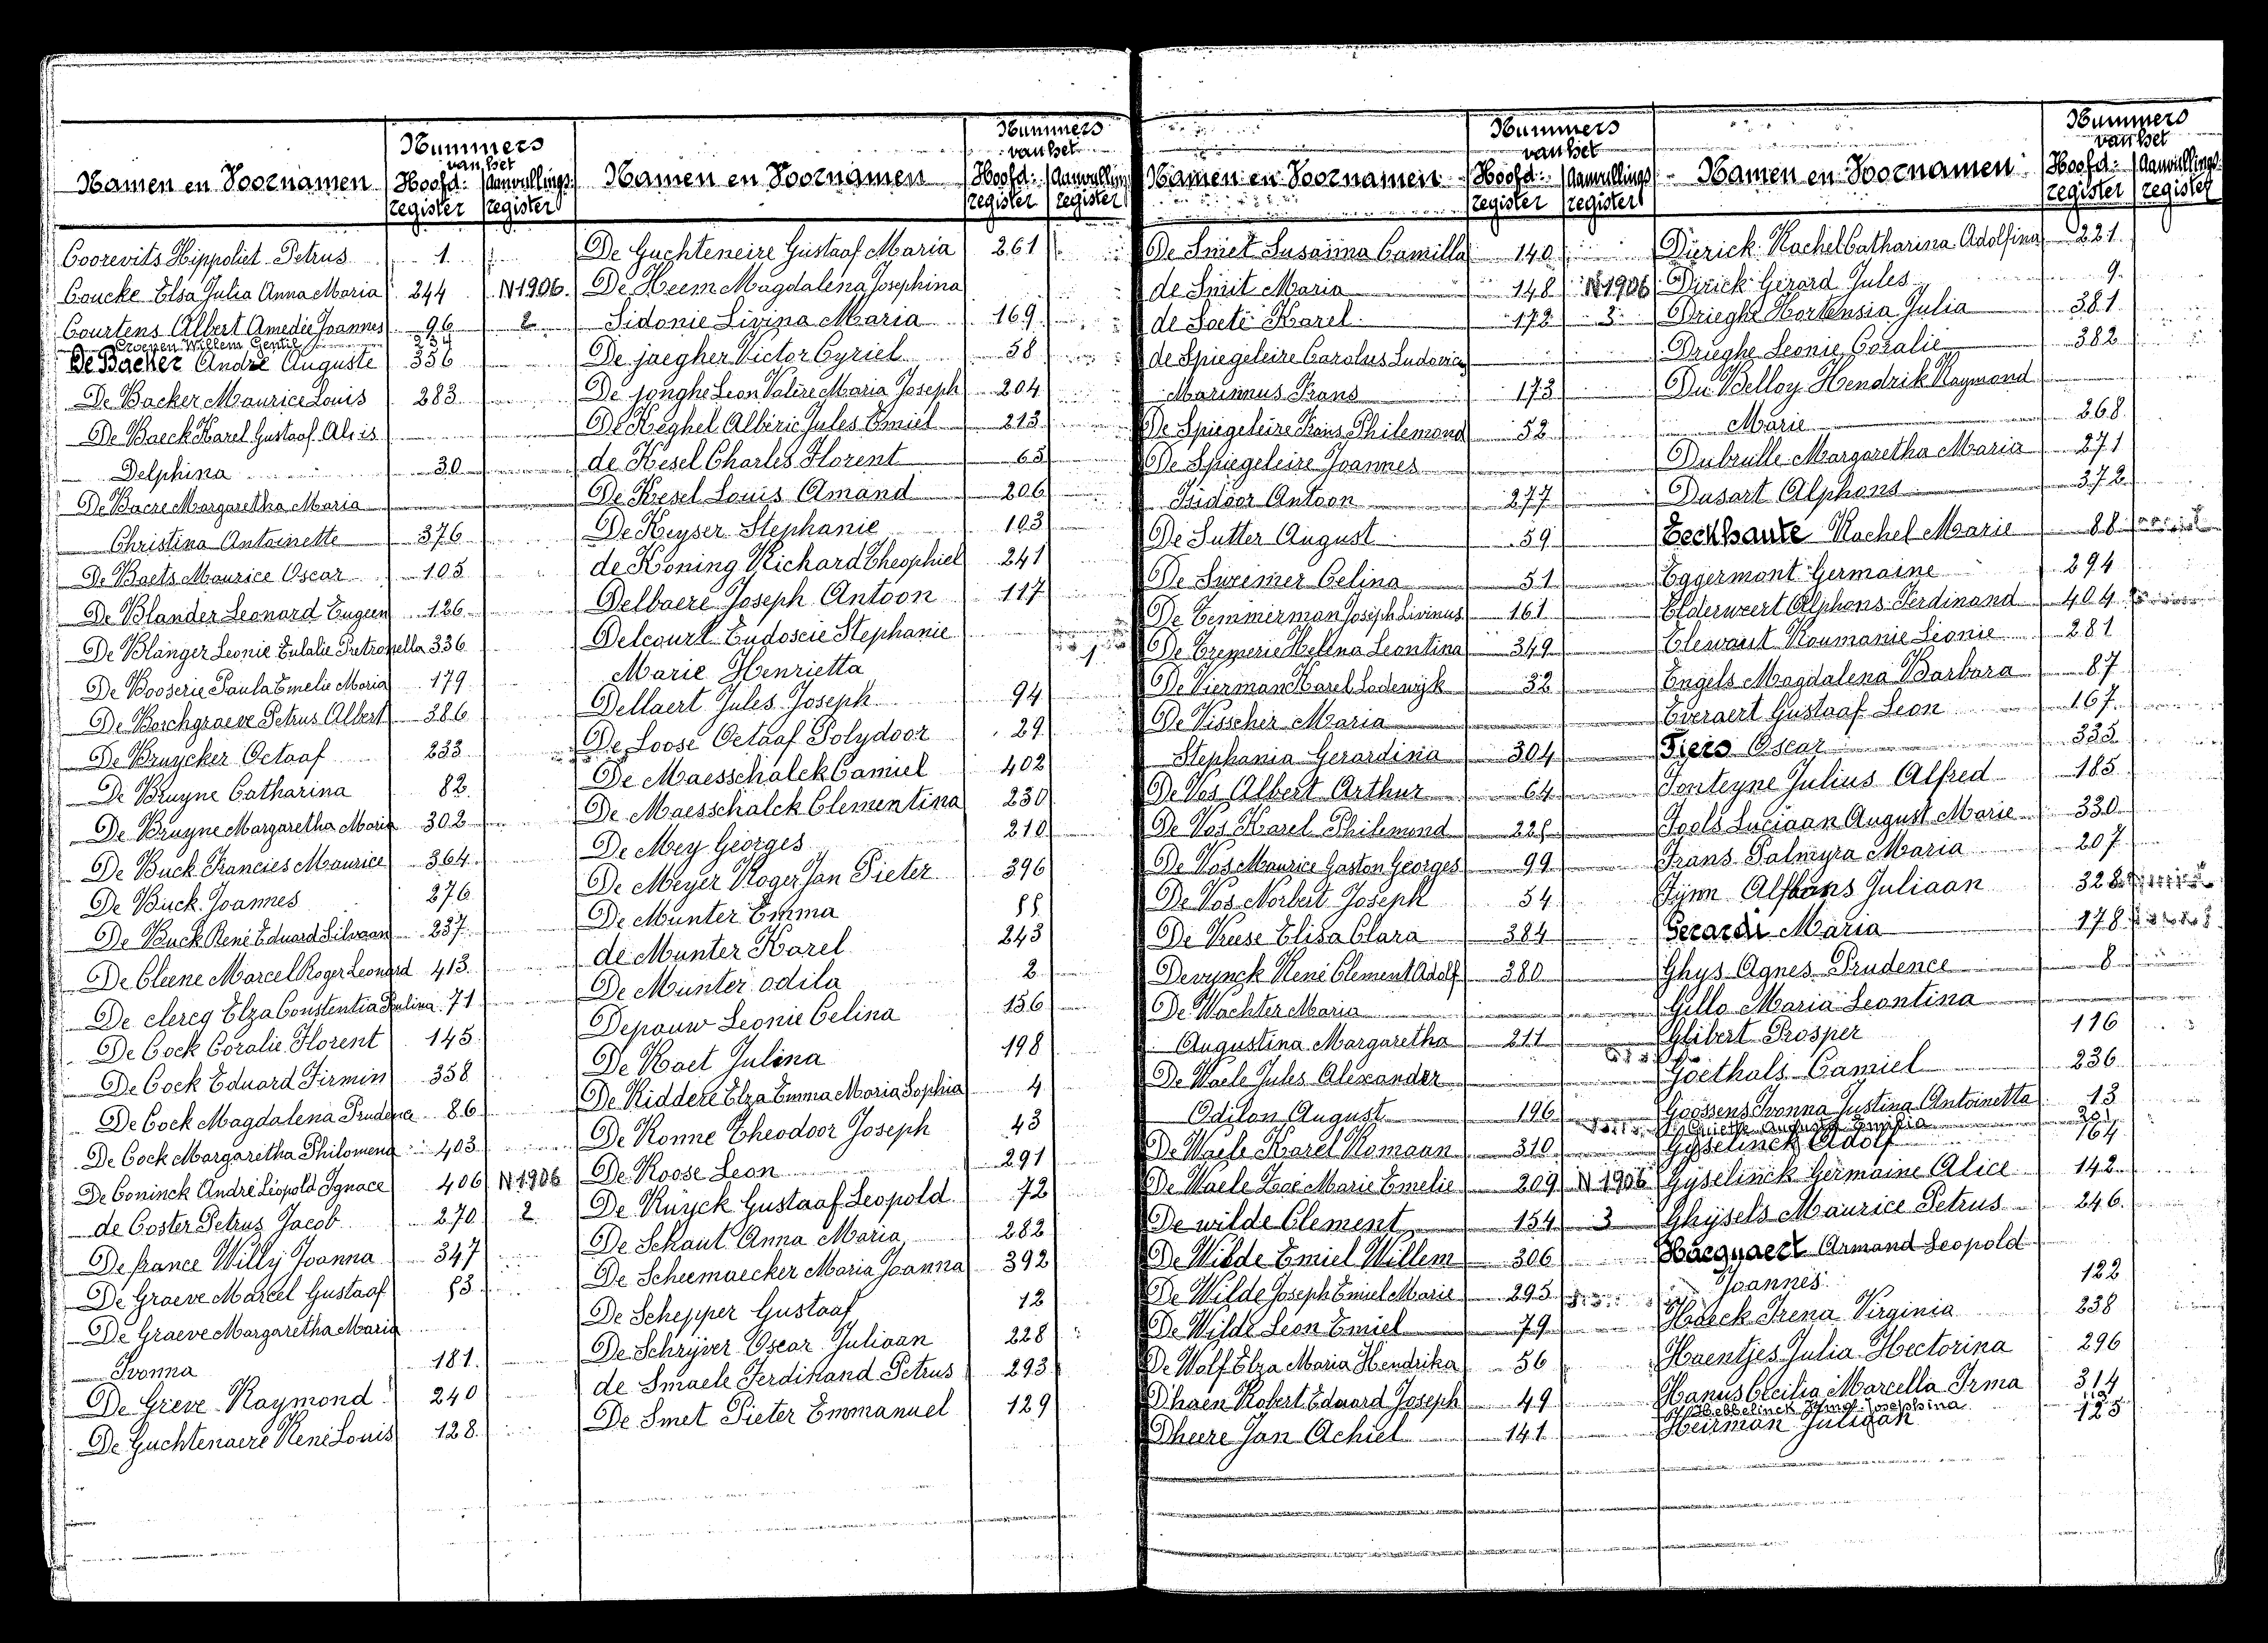 Nummers
van het
Namen en Voornamen Hoofd: Aanvullings
register register
Coorevits Hippoliet Petrus 1
Coucke Elsa Julia Anna Maria 244 N 1906.
Courtens Albert Amedée Joannes 96 2
Croenen Willem Gentil 234
De Backer André Auguste 356
De Backer Maurice Louis 283
De Baeck Karel Gustaaf Aloïs
Delphina 30
De Baere Margaretha Maria
Christina Antoinette 376
De Baets Maurice Oscar 105
De Blander Leonard Eugeen 126
De Blanger Leonie Eulalie Pretronella 336
De Booserie Paula Emelie Maria 179
De Borchgraeve Petrus Albert 386
De Bruycker Octaaf 233
De Bruyne Catharina 82
De Bruyne Margaretha Maria 302
De Buck Francies Maurice 364
De Buck Joannes 276
De Buck René Eduard Silvaan 237
De Cleene Marcel Roger Leonard 413
De clercq Elza Constentia Paulina 71
De Cock Coralie Florent 145
De Cock Eduard Firmin 358
De Cock Magdalena Prudence 86
De Cock Margaretha Philomena 403
De Coninck André Léopold Ignace 406 N 1906
de Coster Petrus Jacob 270 2
De france Willy Joanna 347
De Graeve Marcel Gustaaf 83
De Graeve Margaretha Maria
Ivonna 181
De Greve Raymond 240
De Guchtenaere René Louis 128
Nummers
van het
Namen en Voornamen Hoofd: Aanvullin
register register
De Guchteneire Gustaaf Maria 261
De Heem Magdalena Josephina
Sidonie Livina Maria 169
De jaegher Victor Cyriel 58
De jonghe Leon Valère Maria Joseph 204
De Keghel Albéric Jules Emiel 213
de Kesel Charles Florent 65
De Kesel Louis Amand 206
De Keyser Stephanie 103
de Koning Richard Theophiel 241
Delbaere Joseph Antoon 117
Delcourt Eudoscie Stephanie
Marie Henrietta
Dellaert Jules Joseph 94
De Loose Octaaf Polydoor 29
De Maesschalck Camiel 402
De Maesschalck Clementina 230
De Mey Georges 210
De Meyer Roger Jan Pieter 396
De Munter Emma 88
de Munter Karel 243
De Munter odila 2
Depauw Leonie Celina 156
De Raet Julina 198
De Riddere Elza Emma Maria Sophia 4
De Ronne Theodoor Joseph 43
De Roose Leon 291
De Ruyck Gustaaf Leopold 72
De Schaut Anna Maria 282
De Scheemaecker Maria Joanna 392
De Schepper Gustaaf 12
De Schrijver Oscar Juliaan 228
de Smaele Ferdinand Petrus 293
De Smet Pieter Emmanuel 129
Nummers
van het
Namen en Voornamen Hoofd: Aanvullings
register register
De Smet Susanna Camilla 140
de Smit Maria 148 N 1906
de Soete Karel 172 3
de Spiegeleire Carolus Ludovicus
Marinnus Frans 173
De Spiegeleire Frans Philemond 52
De Spiegeleire Joannes
Isidoor Antoon 277
De Sutter August 59
De Sweimer Celina 51
De Temmerman Joseph Livinus 161
De Tremerie Helena Leontina 349
De Vierman Karel Lodewijk 32
De Visscher Maria
Stephania Gerardina 304
De Vos Albert Arthur 64
De Vos Karel Philemond 228
De Vos Maurice Gaston Georges 99
De Vos Norbert Joseph 54
De Vreese Elisa Clara 384
Devynck René Clement Adolf 380
De Wachter Maria
Augustina Margaretha 211
De Waele Jules Alexander
Odilon August 196
De Waele Karel Romaan 310
De Waele Zoé Marie Emelie 209 N 1906
De wilde Clement 154 3
De Wilde Emiel Willem 306
De Wilde Joseph Emiel Marie 295
De Wilde Leon Emiel 79
De Wolf Elza Maria Hendrika 56
Dhaen Robert Eduard Joseph 49
Dheere Jan Achiel 141
Nummers
van het
Namen en Voornamen Hoofd: Aanvullings
register register
Dirick Rachel Catharina Adolfina 221
Dirick Gérard Jules 9
Drieghe Hortensia Julia 381
Drieghe Leonie Coralie 382
Du Belloy Hendrik Raymond
Marie 268
Dubrulle Margaretha Maria 271
Dusart Alphons 372
Eeckhaute Rachel Marie 88
Eggermont Germaine 294
Elderweert Alphons Ferdinand 404
Elewaut Roumanie Leonie 281
Engels Magdalena Barbara 87
Everaert Gustaaf Leon 167
Fiers Oscar 335
Fonteyne Julius Alfred 185
Fools Luciaan August Marie 330
Frans Palmyra Maria 207
Fynn Alfons Juliaan 328
Gerardi Maria 178
Ghys Agnes Prudence 8
Gillo Maria Leontina
Glibert Prosper 116
Goethals Camiel 236
Goossens Ivonna Justina Antoinetta 13
Augusta Emilia
Gyselinck Adolf 164
Gyselinck Germaine Alice 142
Ghijsels Maurice Petrus 246
Haegnaert Armand Leopold
Joannes 122
Haeck Irena Virginia 238
Haentjes Julia Hectorina 296
Hanus Cecilia Marcella Irma 314
Hebbelinck Irma Josephina
Heirman Juliaan 125